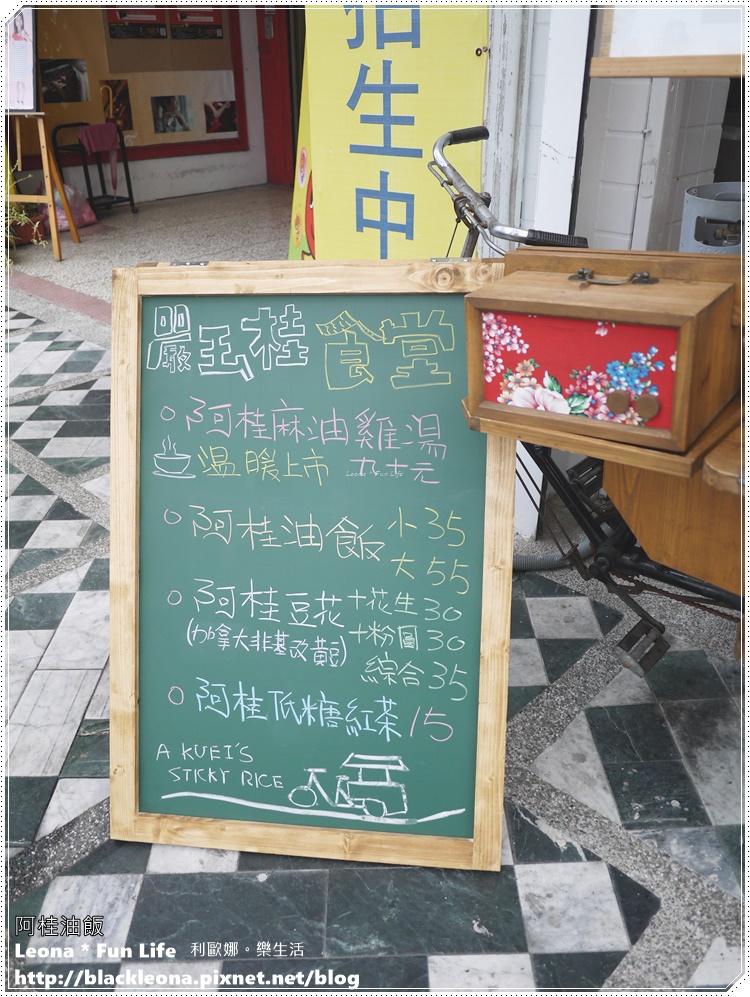 招生中
嚴玉桂食堂
阿桂麻油雞湯
溫暖上市 九十元
Leona * Fun Life
阿桂油飯 小35
大55
阿桂豆花 +花生30
(加拿大非基改黃豆) +粉圓30
綜合35
阿桂低糖紅茶 15
A KUEI'S
STICKY RICE
阿桂油飯
Leona * Fun Life 利歐娜。樂生活
http://blackleona.pixnet.net/blog